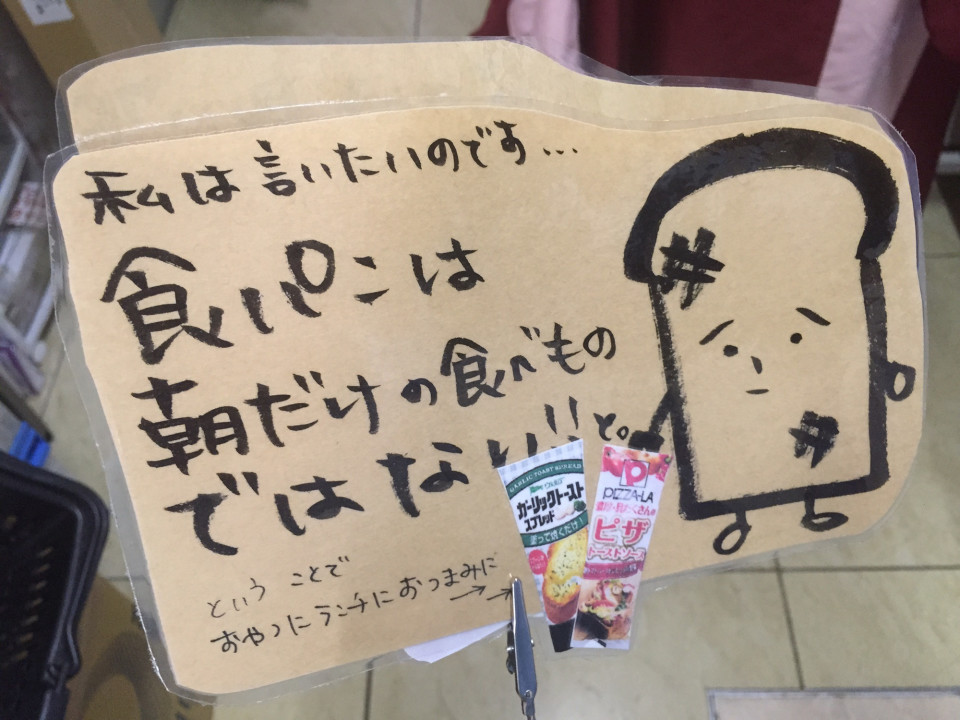 私は言いたいのです...
食パンは
朝だけの食べもの
ではない!!と。
という ことで
おやつにランチにおつまみに
→→
GARLIC TOAST SPREAD
ガーリックトースト
スプレッド
塗って焼くだけ!
P
PIZZA-LA
ピザ
トーストソース